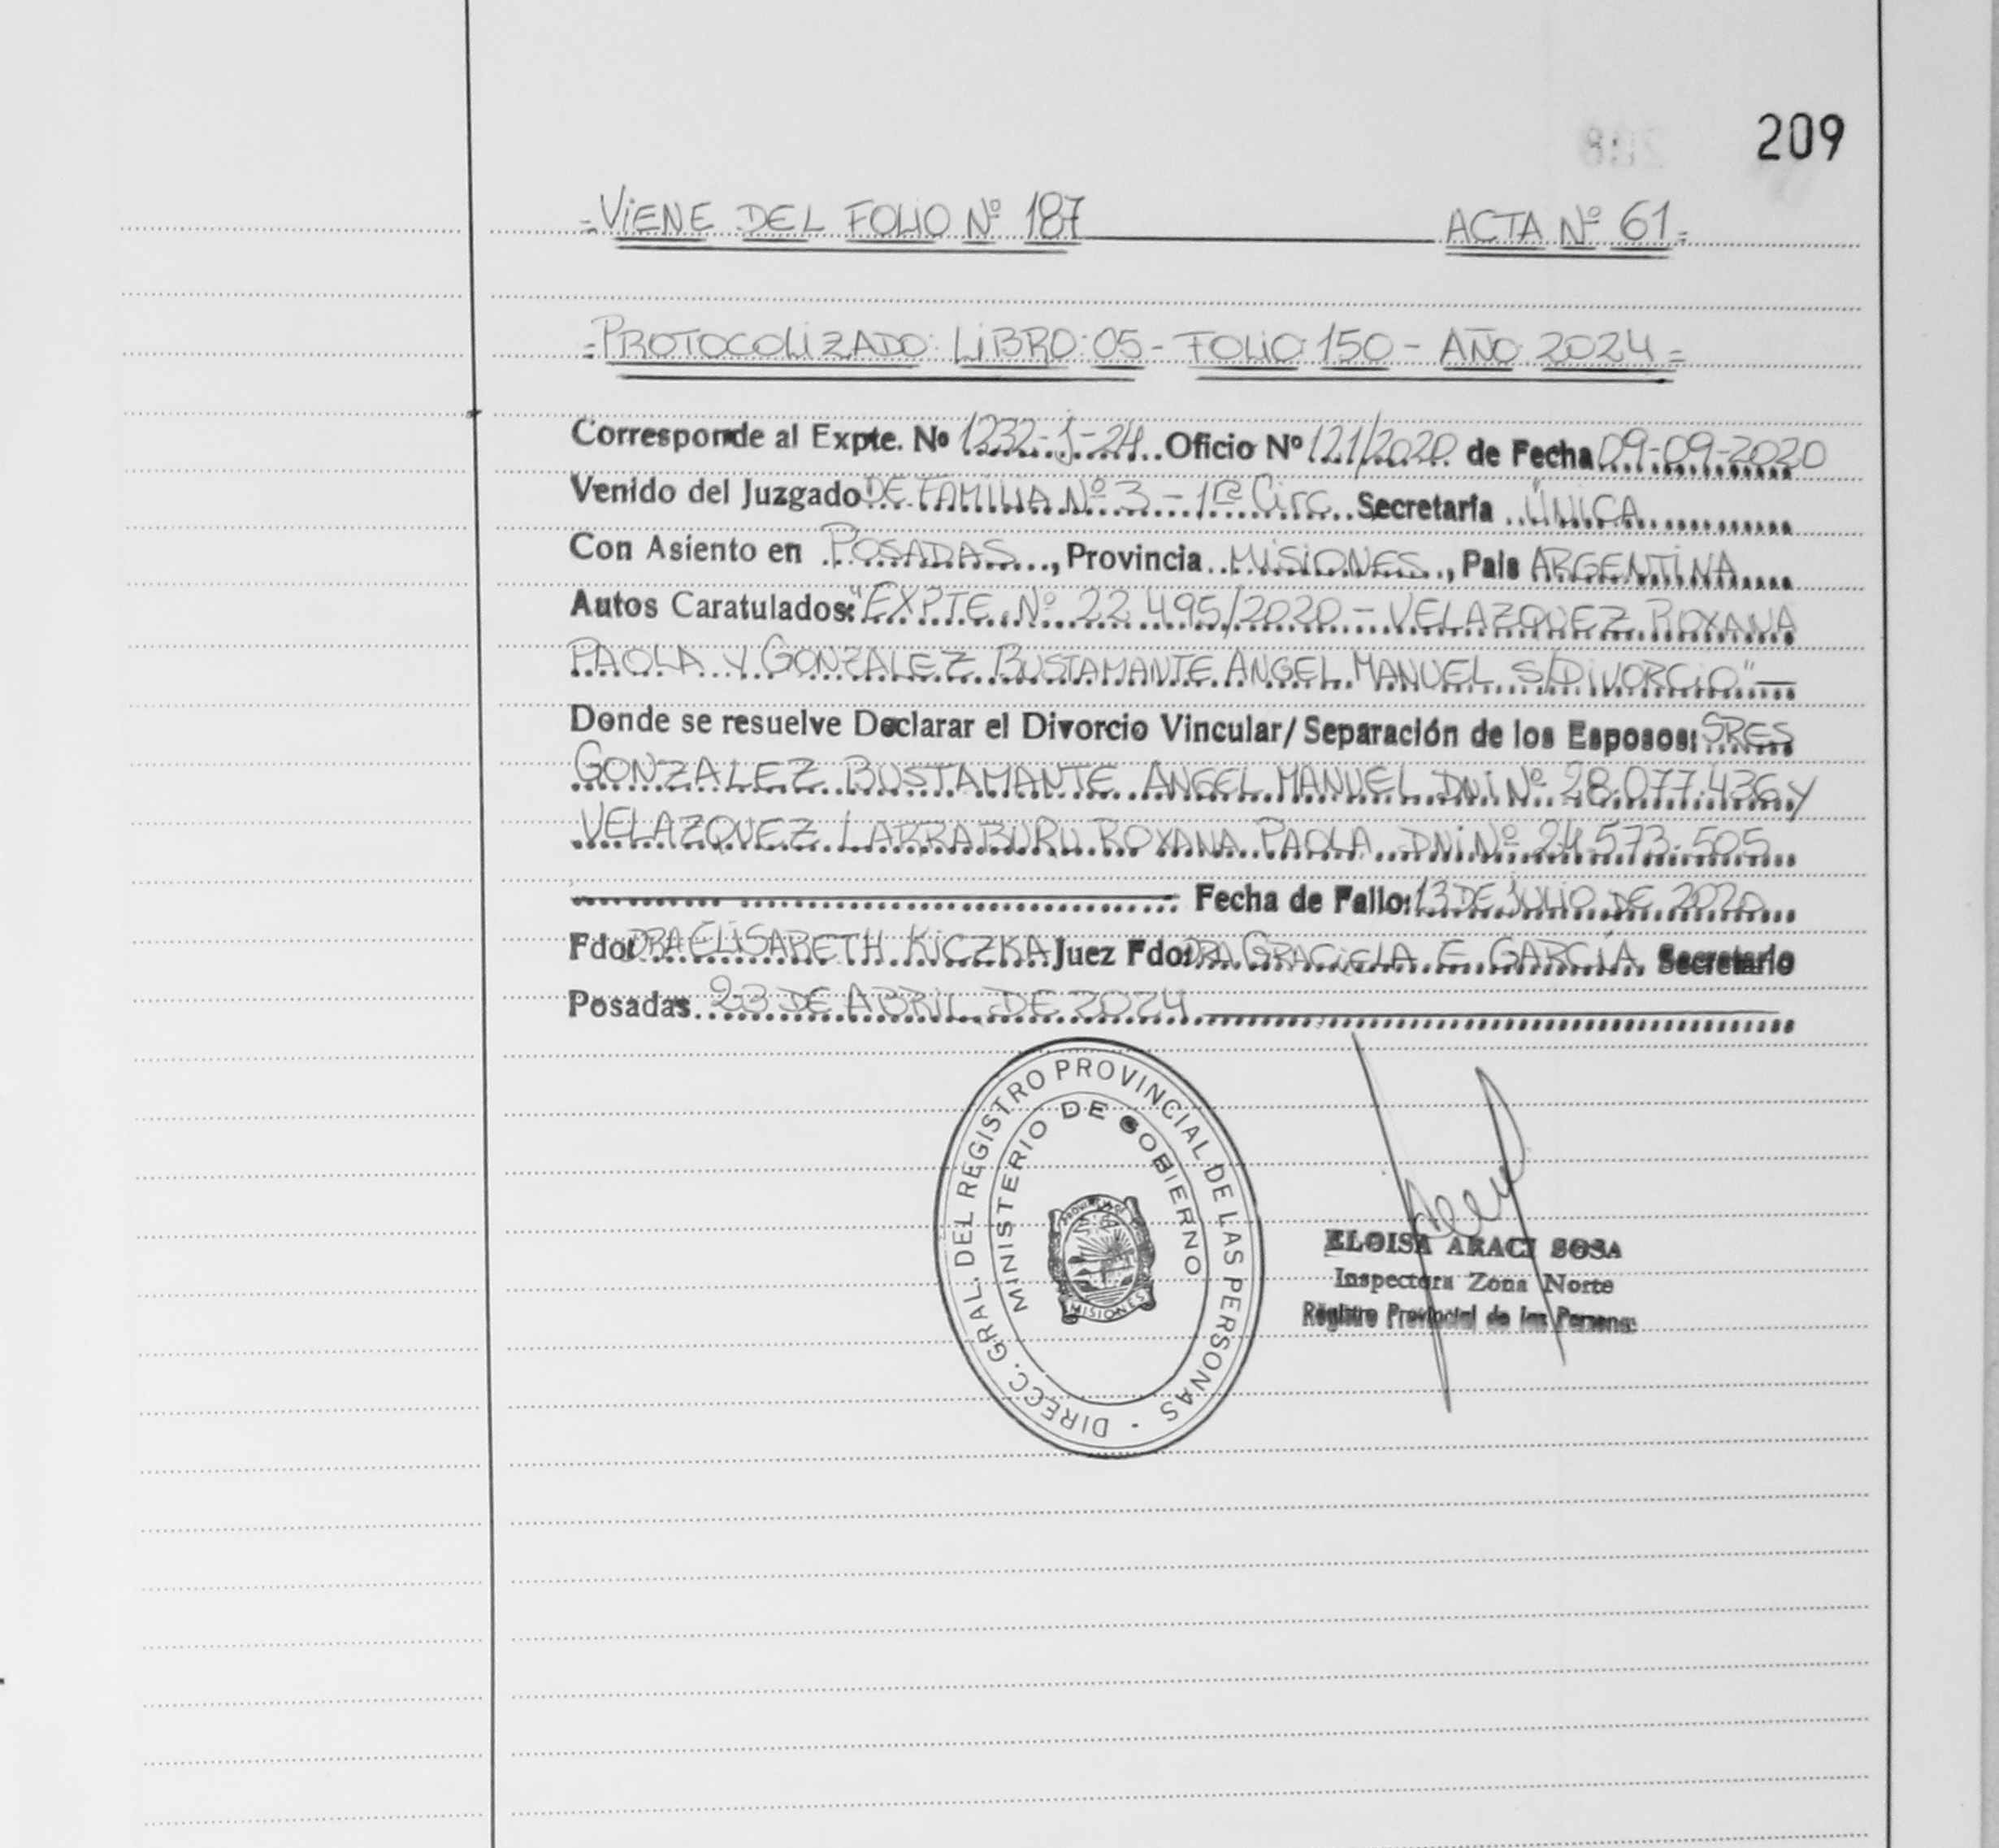 209
=VIENE DEL FOLIO Nº 187 ACTA Nº 61=
=PROTOCOLIZADO: LIBRO: 05 - FOLIO 150 - AÑO 2024=
Corresponde al Expte. Nº 1232-J-24 Oficio Nº 121/2020 de Fecha 09-09-2020
Venido del Juzgado DE FAMILIA Nº 3 - 1ra Circ. Secretaría ÚNICA
Con Asiento en POSADAS, Provincia MISIONES, País ARGENTINA
Autos Caratulados: "EXPTE. Nº 22.495/2020 - VELAZQUEZ ROXANA
PAOLA Y GONZALEZ BUSTAMANTE ANGEL MANUEL S/DIVORCIO"
Donde se resuelve Declarar el Divorcio Vincular/Separación de los Esposos: SRES
GONZALEZ BUSTAMANTE ANGEL MANUEL DNI Nº 28.077.436 Y
VELAZQUEZ LARRABURU ROXANA PAOLA DNI Nº 24.573.505
Fecha de Fallo: 13 DE JULIO DE 2020
Fdo: DRA ELISABETH KICZKA Juez Fdo: DRA GRACIELA E. GARCÍA Secretario
Posadas 23 DE ABRIL DE 2024
DIRECC. GRAL. DEL REGISTRO PROVINCIAL DE LAS PERSONAS -
MINISTERIO DE GOBIERNO
MISIONES
ELOISA ARACI SOSA
Inspectora Zona Norte
Registro Provincial de las Personas